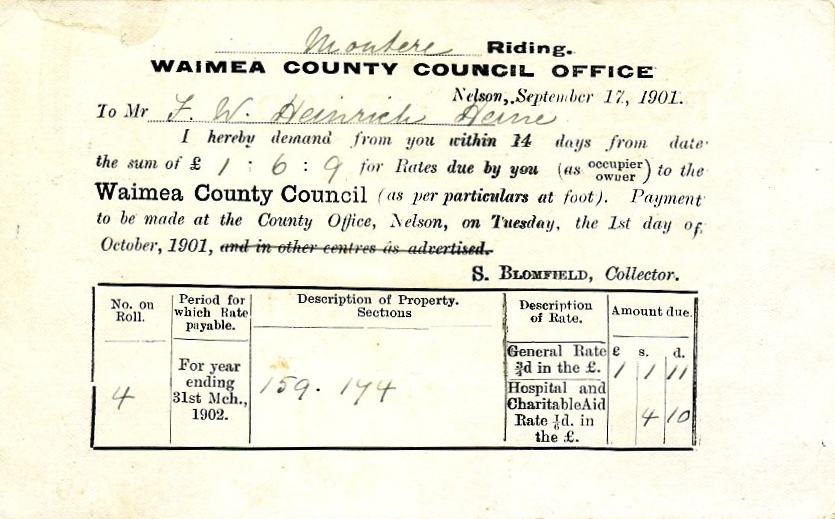 Moutere Riding.
WAIMEA COUNTY COUNCIL OFFICE
Nelson, September 17, 1901.
To Mr F. W. Heinrich Heine
I hereby demand from you within 14 days from date
the sum of £ 1 : 6 : 9 for Rates due by you (as occupier owner) to the
Waimea County Council (as per particulars at foot). Payment
to be made at the County Office, Nelson, on Tuesday, the 1st day of
October, 1901, and in other centres as advertised.
S. BLOMFIELD, Collector.
No. on Roll.
Period for which Rate payable.
Description of Property.
Sections
Description of Rate.
Amount due.
4
For year ending 31st Mch., 1902.
159. 174
General Rate £ s. d.
¾d in the £. 1 1 11
Hospital and
Charitable Aid 4 10
Rate ⅙d. in
the £.